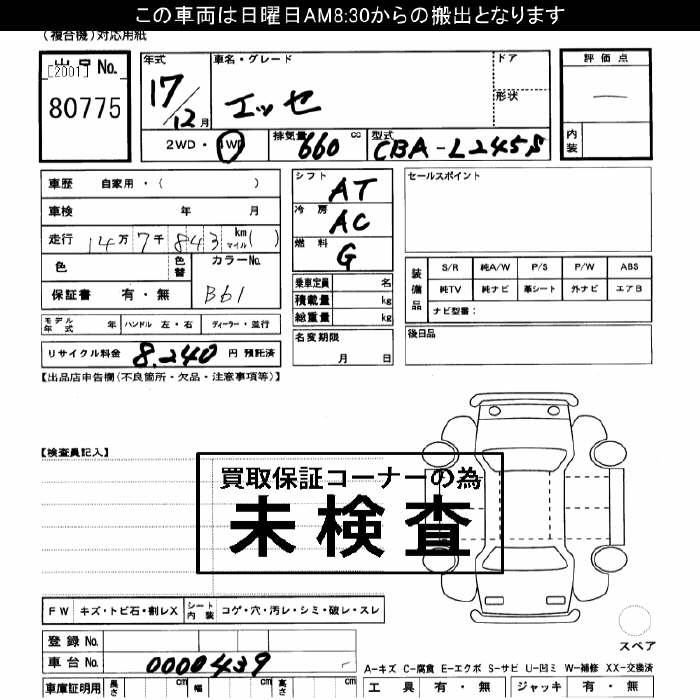 この車両は日曜日AM8:30からの搬出となります
(複合機)対応用紙
出品No.
[2001]
80775
年式 車名・グレード ドア 評価点
17/12月 エッセ 形状 —
内装
2WD・4WD 排気量 660 cc 型式 CBA-L245S
車歴 自家用・( )
車検 年 月
走行 14万7千843 km マイル( )
色 色替 カラーNo.
保証書 有・無 B61
シフト AT
冷房 AC
燃料 G
乗車定員 名
積載量 kg
総重量 kg
セールスポイント
装備品 S/R 純A/W P/S P/W ABS
純TV 純ナビ 革シート 外ナビ エアB
ナビ型番:
モデル年式 年 ハンドル 左・右 ディーラー・並行
名変期限
月 日
後日品
リサイクル料金 8,240 円 預託済
【出品店申告欄(不良箇所・欠品・注意事項等)】
【検査員記入】
買取保証コーナーの為
未検査
FW キズ・トビ石・割レX シート内装 コゲ・穴・汚レ・シミ・破レ・スレ
登録No.
車台No. 0000439
スペア
A-キズ C-腐食 E-エクボ S-サビ U-凹ミ W-補修 XX-交換済
車庫証明用 長さ cm 幅 cm 高さ cm
工具 有・無 ジャッキ 有・無